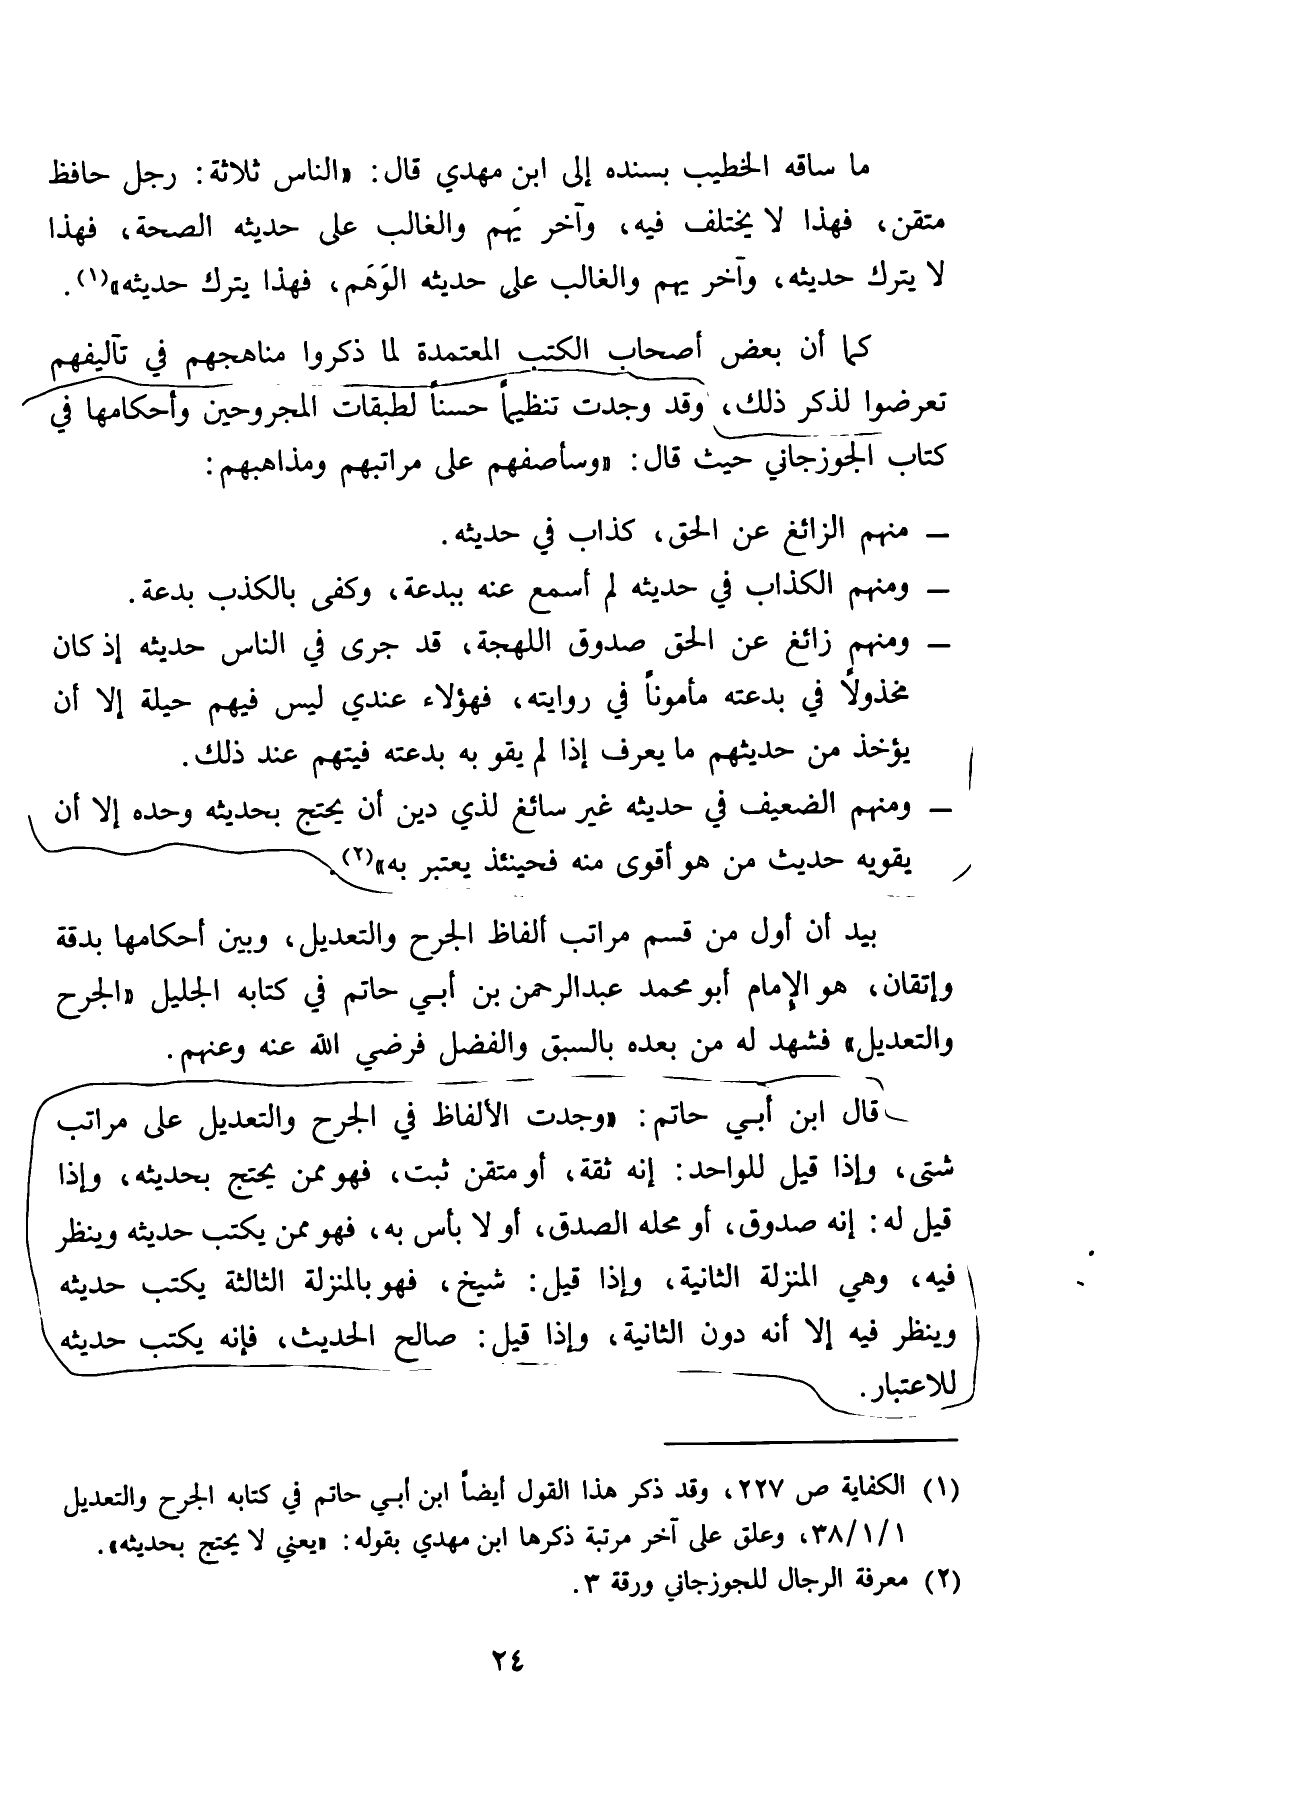 ما ساقه الخطيب بسنده إلى ابن مهدي قال: «الناس ثلاثة: رجل حافظ
متقن، فهذا لا يختلف فيه، وآخر يَهم والغالب على حديثه الصحة، فهذا
لا يترك حديثه، وآخر يهم والغالب على حديثه الوَهَم، فهذا يترك حديثه»(١).
كما أن بعض أصحاب الكتب المعتمدة لما ذكروا مناهجهم في تآليفهم
تعرضوا لذكر ذلك، وقد وجدت تنظيماً حسناً لطبقات المجروحين وأحكامها في
كتاب الجوزجاني حيث قال: «وسأصفهم على مراتبهم ومذاهبهم:
— منهم الزائغ عن الحق، كذاب في حديثه.
— ومنهم الكذاب في حديثه لم أسمع عنه ببدعة، وكفى بالكذب بدعة.
— ومنهم زائغ عن الحق صدوق اللهجة، قد جرى في الناس حديثه إذ كان
مخذولاً في بدعته مأموناً في روايته، فهؤلاء عندي ليس فيهم حيلة إلا أن
يؤخذ من حديثهم ما يعرف إذا لم يقو به بدعته فيتهم عند ذلك.
— ومنهم الضعيف في حديثه غير سائغ لذي دين أن يحتج بحديثه وحده إلا أن
يقويه حديث من هو أقوى منه فحينئذ يعتبر به»(٢).
بيد أن أول من قسم مراتب ألفاظ الجرح والتعديل، وبين أحكامها بدقة
وإتقان، هو الإمام أبو محمد عبدالرحمن بن أبي حاتم في كتابه الجليل «الجرح
والتعديل» فشهد له من بعده بالسبق والفضل فرضي الله عنه وعنهم.
قال ابن أبي حاتم: «وجدت الألفاظ في الجرح والتعديل على مراتب
شتى، وإذا قيل للواحد: إنه ثقة، أو متقن ثبت، فهو ممن يحتج بحديثه، وإذا
قيل له: إنه صدوق، أو محله الصدق، أو لا بأس به، فهو ممن يكتب حديثه وينظر
فيه، وهي المنزلة الثانية، وإذا قيل: شيخ، فهو بالمنزلة الثالثة يكتب حديثه
وينظر فيه إلا أنه دون الثانية، وإذا قيل: صالح الحديث، فإنه يكتب حديثه
للاعتبار.
(١) الكفاية ص ٢٢٧، وقد ذكر هذا القول أيضاً ابن أبي حاتم في كتابه الجرح والتعديل
٣٨/١/١، وعلق على آخر مرتبة ذكرها ابن مهدي بقوله: «يعني لا يحتج بحديثه».
(٢) معرفة الرجال للجوزجاني ورقة ٣.
٢٤